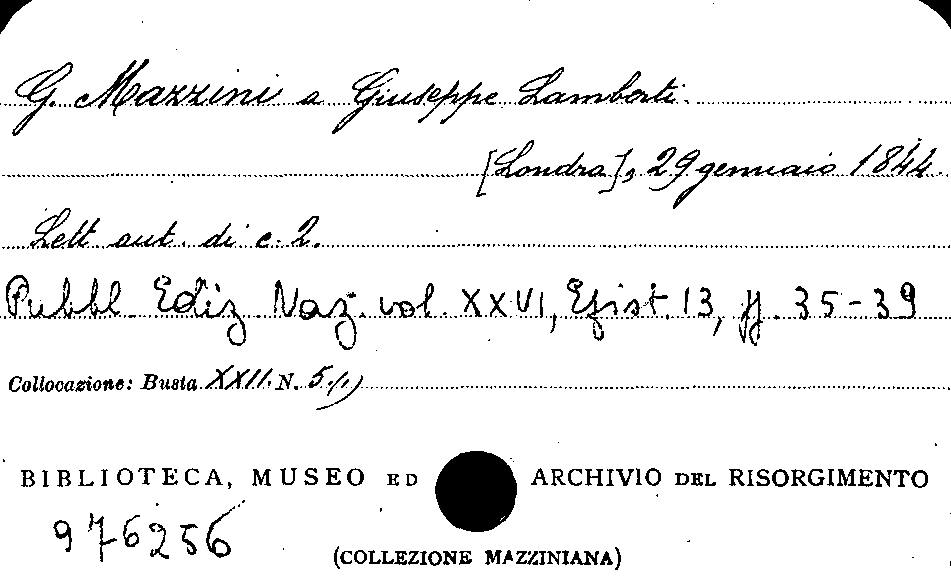 G. Mazzini a Giuseppe Lamberti.
[Londra], 29 gennaio 1844.
Lett aut. di c. 2.
Pubbl. Ediz. Naz. vol. XXVI, Epist. 13, pp. 35-39
Collocazione: Busta XXII. N. 5
BIBLIOTECA, MUSEO ED ARCHIVIO DEL RISORGIMENTO
976256
(COLLEZIONE MAZZINIANA)